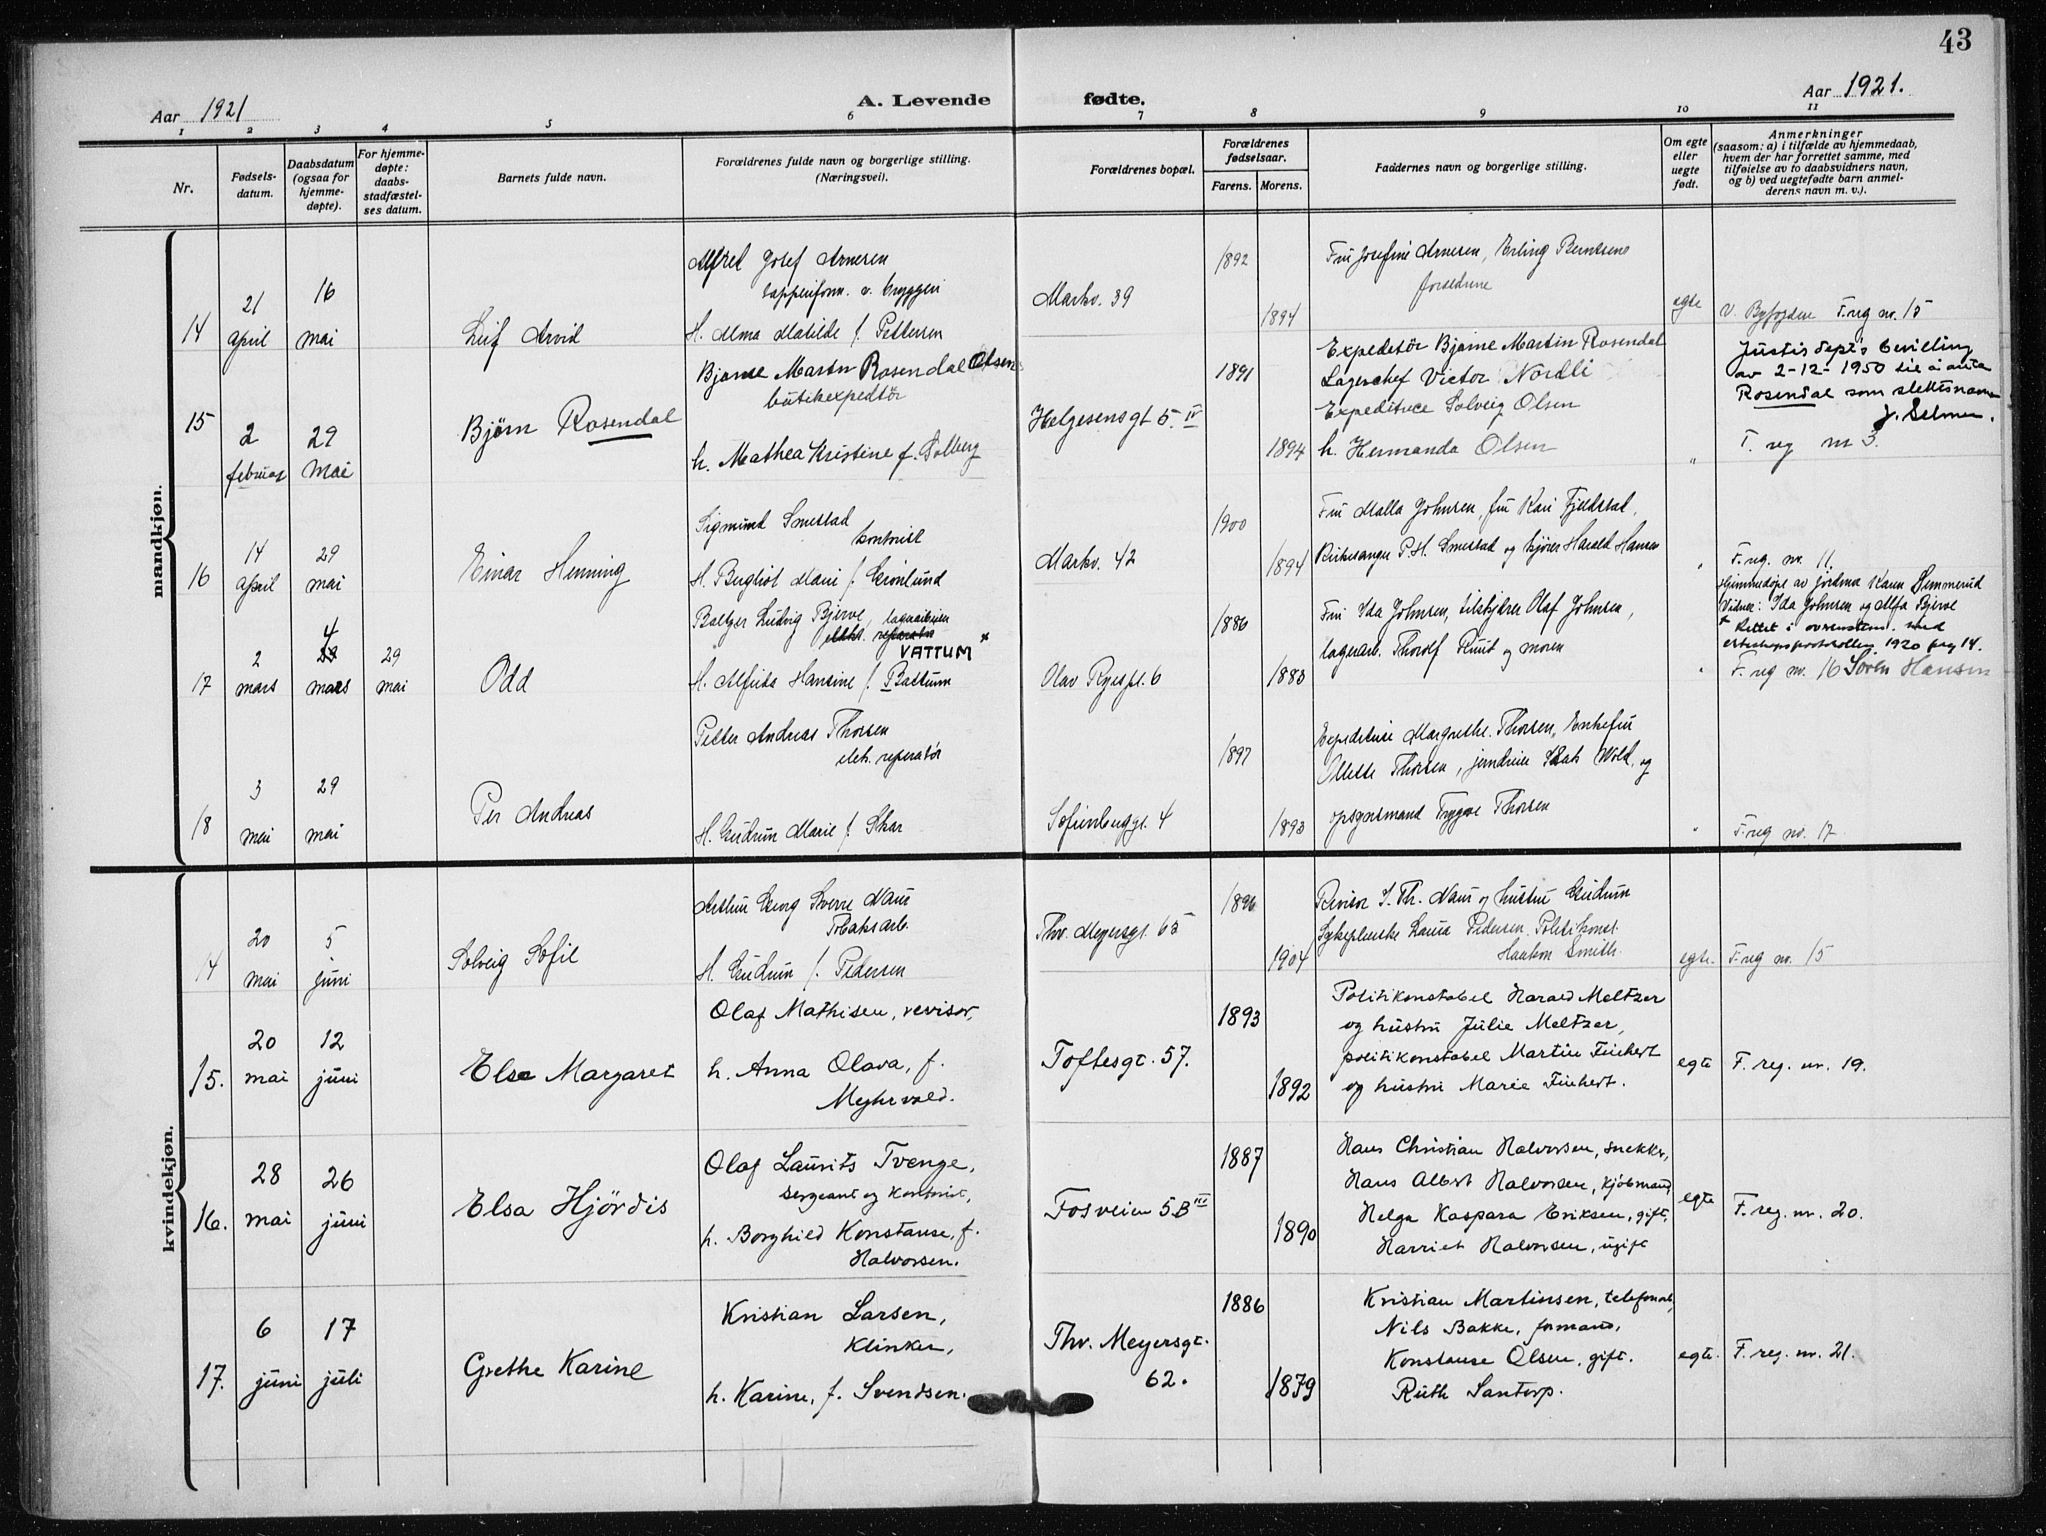 43
Aar 1921
A. Levende fødte.
Aar 1921.
1 2 3 4 5 6 7 8 9 10 11
Nr.
Fødsels-
datum.
Daabsdatum
(ogsaa for
hjemme-
døpte).
For hjemme-
døpte:
daabs-
stadfæstel-
ses datum.
Barnets fulde navn.
Forældrenes fulde navn og borgerlige stilling.
(Næringsvei).
Forældrenes bopæl.
Forældrenes
fødselsaar.
Farens. Morens.
Faddernes navn og borgerlige stilling.
Om egte
eller
uegte
født.
Anmerkninger
(saasom: a) i tilfælde av hjemmedaab,
hvem der har forrettet samme, med
tilføielse av to daabsvidners navn,
og b) ved uegtefødte barn anmel-
derens navn m. v.).
mandkjøn.
14
21
april
16
mai
Leif Arvid
Alfred Josef Arnesen
tapperiform. v. bryggeri
H. Alma Matilde f. Pettersen
Markv. 39
1892
1894
Fru Josefine Arnesen, Erling Berntsens
forældrene
egte
v. Byfogden F. reg nr. 15
15
2
februar
29
Mai
Bjørn Rosendal
Bjarne Martin Rosendal Olsen
butikexpedtør
h. Mathea Kristine f. Solberg
Helgesensgt 5. IV
1891
1894
Expeditør Bjarne Martin Rosendal
Lagerchef Victor Nordli
Expeditrice Solveig Olsen
h. Hermanda Olsen
"
Justisdept's bevilling
av 2-12-1950 til å anta
Rosendal som slektsnavn
J. Selmer.
F. reg nr 3.
16
14
april
29
mai
Einar Henning
Sigmund Smestad
kontorist
H. Bergliot Marie f. Grönlund
Markv. 42
1900
1894
Fru Malla Johnsen, fru Kari Fjeldstad,
Kirkesanger P. H. Smestad og kjører Harald Hansen
"
F. reg. nr. 11.
17
2
mars
4
mars
29
mai
Odd
Baltzer Ludvig Bjerve, lagerarbeider
elekt. reparatør
VATTUM *
H. Alfrida Hansine f. Battum
Olav Ryespl. 6
1886
1883
Fru Ida Johnsen, tilskjærer Olaf Johnsen,
lagerarb. Thorolf Ruud og moren
"
Hjemmedøpt av jordmor Karen Semmerud
Vidner: Ida Johnsen og Alfa Bjerve
* Rettet i overenstem. med
ekteskapsprotokollen 1920 pag 14.
F. reg nr. 16 Søren Hansen
18
3
mai
29
mai
Per Andreas
Petter Andreas Thorsen
elek. reperatør
H. Gudrun Marie f. Skar
Sofienberggt. 4
1897
1893
Expeditrice Margrethe Thorsen, Enkefru
Olette Thorsen, jerndreier Wold, og
opsynsmand Trygve Thorsen
"
F. reg nr. 17
kvindekjøn.
14
20
mai
5
juni
Solveig Sofie
Arthur Georg Sverre Naus
Tobaksarb.
H. Gudrun f. Pedersen
Thv. Meyersgt. 65
1896
1904
Revisor I. Th. Naus og hustru Gudrun
Sykepleierske Laura Pedersen. Politikonst.
Haakon Smith.
egte.
F. reg nr. 15
15.
20
mai
12
juni
Else Margaret
Olaf Mathisen, revisor,
h. Anna Olava, f.
Myhrvold.
Toftesgt. 57.
1893
1892
Politikonstabel Harald Meltzer
og hustru Julie Meltzer,
politikonstabel Martin Finhert
og hustru Marie Finhert.
egte
F. reg. nr. 19.
16.
28
mai
26
juni
Elsa Hjördis
Olaf Laurits Tvenge,
sergeant og kontorist,
h. Borghild Konstanse, f.
Halvorsen.
Fosveien 5B III
1887
1890
Hans Christian Halvorsen, snekker,
Hans Albert Halvorsen, kjöbmand
Helga Kaspara Eriksen, gift,
Harriet Halvorsen, ugift
egte
F. reg. nr. 20.
17.
6
juni
17
juli
Grethe Karine
Kristian Larsen,
Klinker,
h. Karine, f. Svendsen.
Thv. Meyersgt.
62.
1886
1879
Kristian Martinsen, telefonarb,
Nils Bakke, formand,
Konstanse Olsen, gift.
Ruth Santorp.
egte.
F. reg. nr. 21.